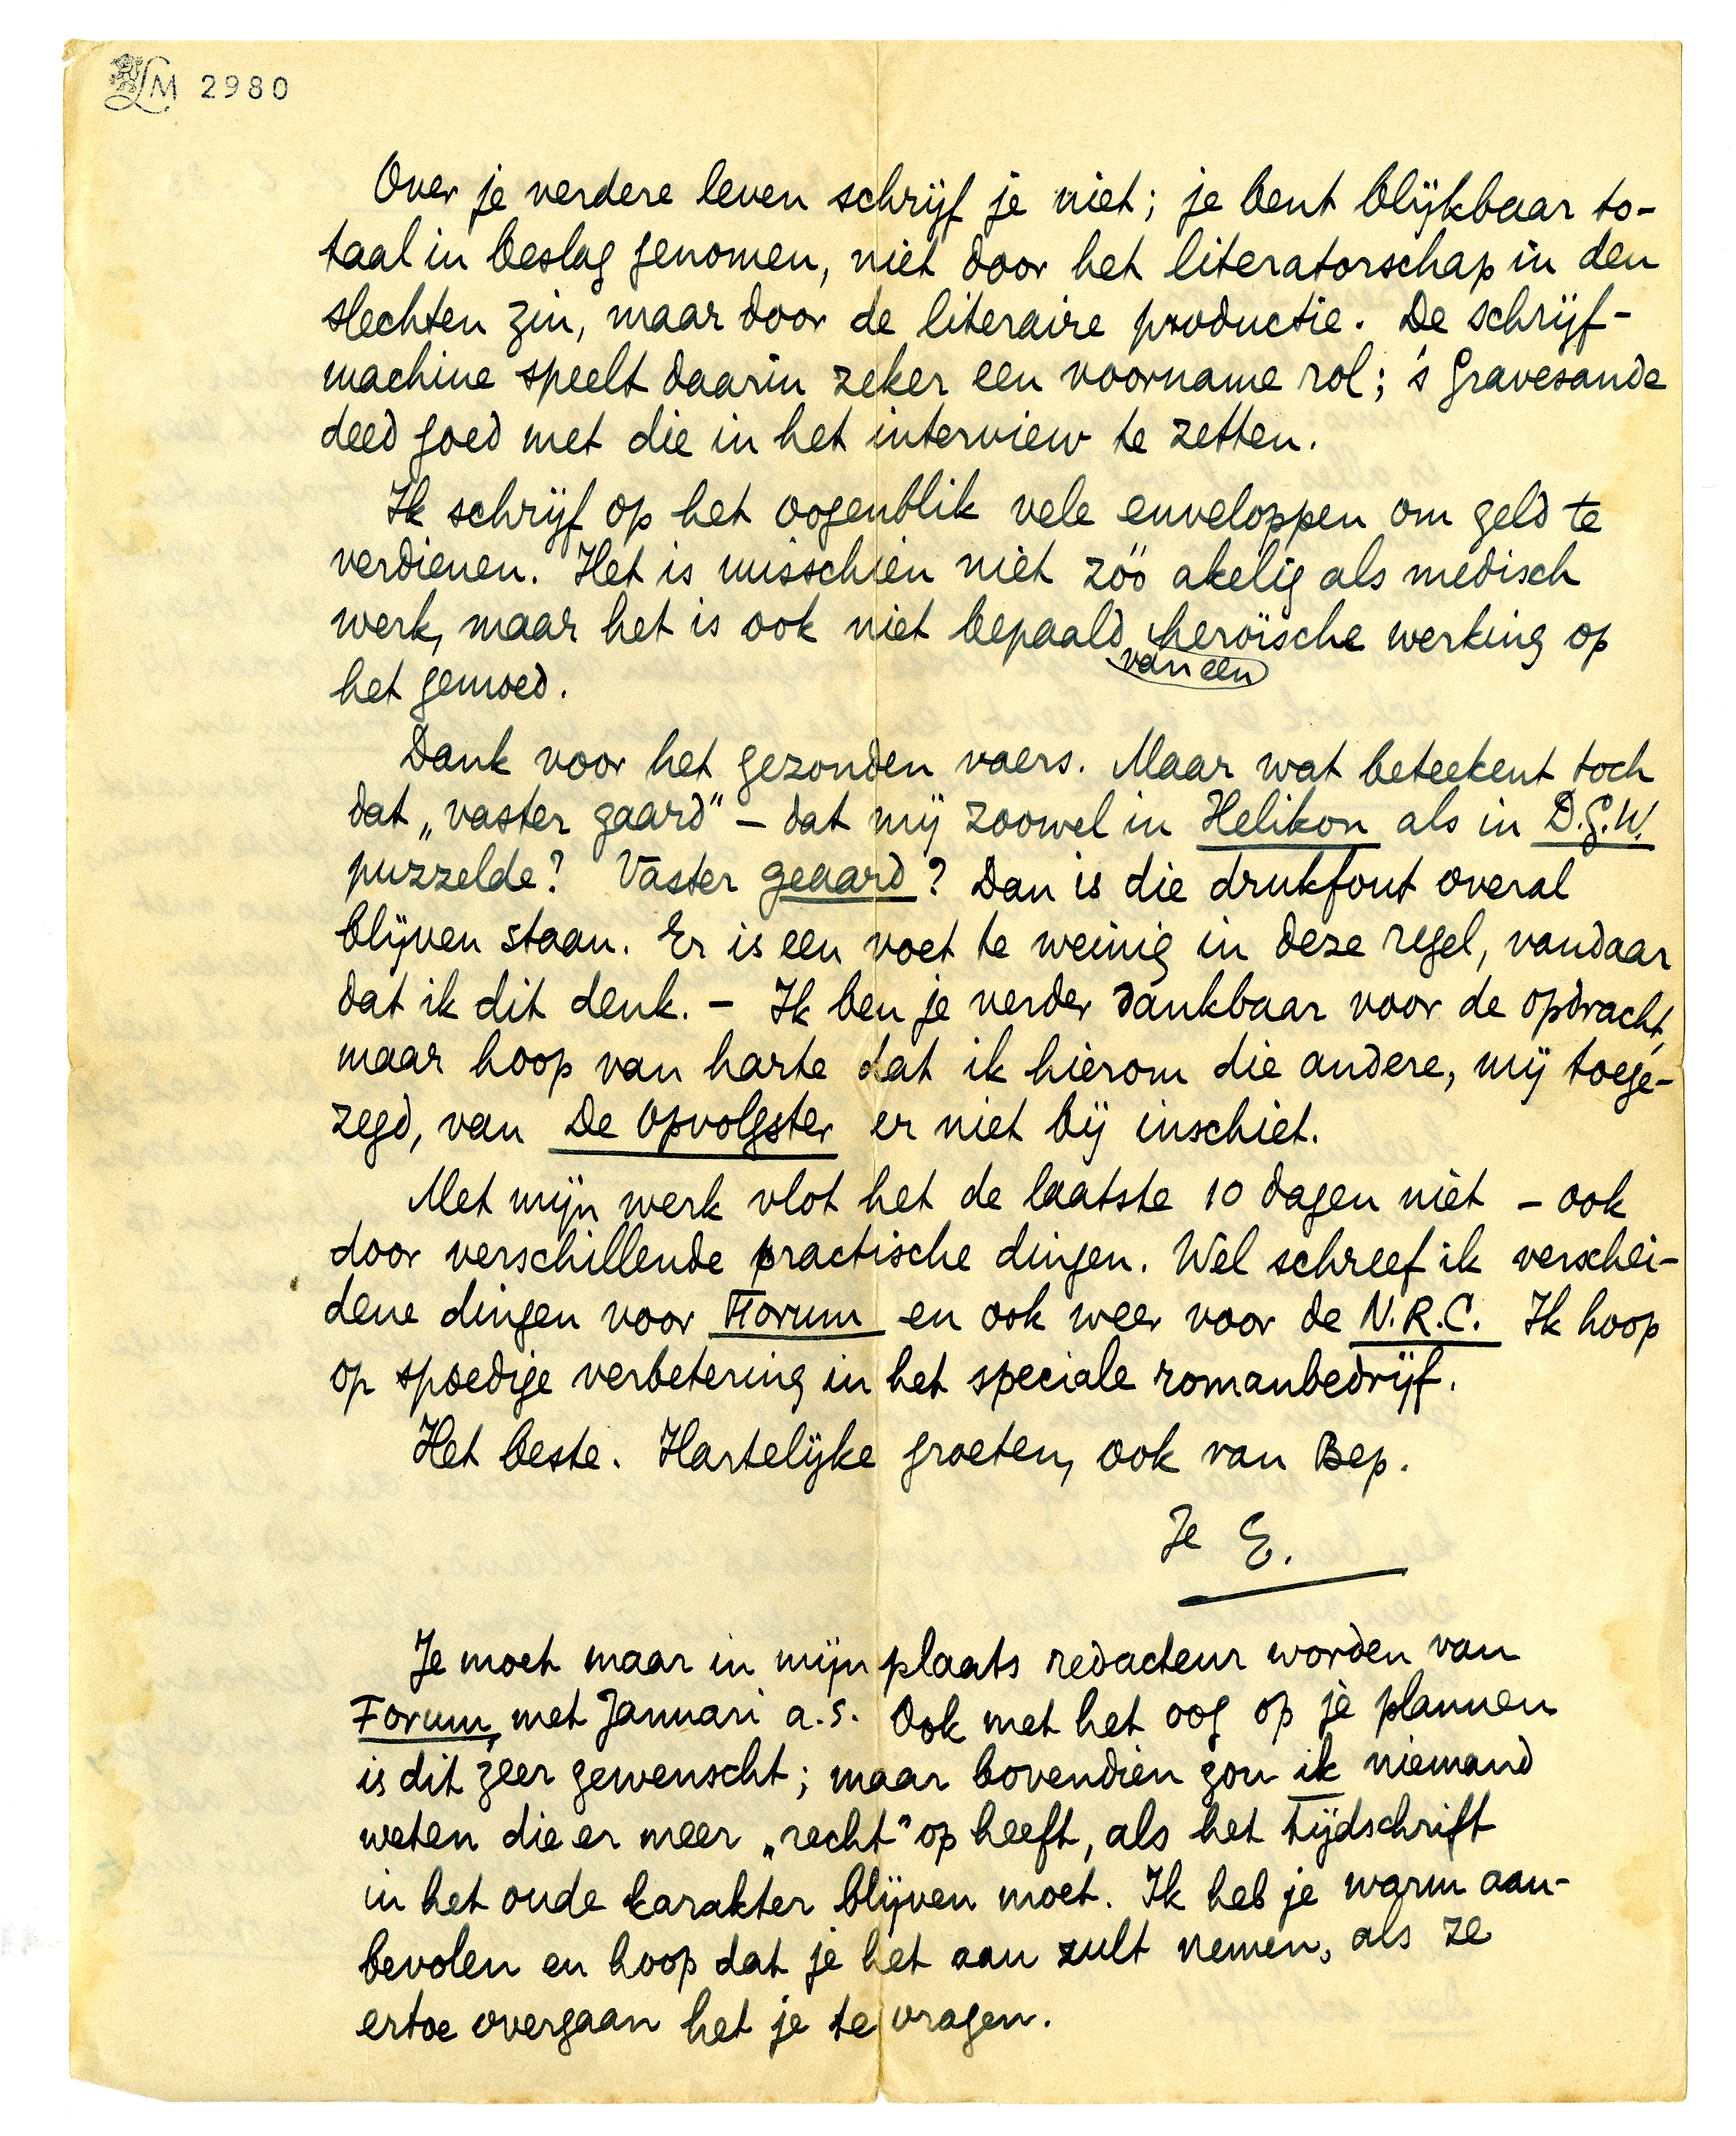 LM 2980
Over je verdere leven schrijf je niet; je bent blijkbaar to-
taal in beslag genomen, niet door het literatorschap in den
slechten zin, maar door de literaire productie. De schrijf-
machine speelt daarin zeker een voorname rol; 's Gravesande
deed goed met die in het interview te zetten.
Ik schrijf op het oogenblik vele enveloppen om geld te
verdienen. Het is misschien niet zóó akelig als medisch
werk, maar het is ook niet bepaald heroïsche werking op
van een
het gemoed.
Dank voor het gezonden vaers. Maar wat beteekent toch
dat „vaster gaard" – dat mij zoowel in Helikon als in D.G.W.
puzzelde? Vaster geaard? Dan is die drukfout overal
blijven staan. Er is een voet te weinig in deze regel, vandaar
dat ik dit denk. – Ik ben je verder dankbaar voor de opdracht,
maar hoop van harte dat ik hierom die andere, mij toege-
zegd, van De Opvolgster er niet bij inschiet.
Met mijn werk vlot het de laatste 10 dagen niet – ook
door verschillende practische dingen. Wel schreef ik verschei-
dene dingen voor Forum en ook weer voor de N.R.C. Ik hoop
op spoedige verbetering in het speciale romanbedrijf.
Het beste. Hartelijke groeten, ook van Bep.
Je E.
Je moet maar in mijn plaats redacteur worden van
Forum, met Januari a.s. Ook met het oog op je plannen
is dit zeer gewenscht; maar bovendien zou ik niemand
weten die er meer „recht" op heeft, als het tijdschrift
in het oude karakter blijven moet. Ik heb je warm aan-
bevolen en hoop dat je het aan zult nemen, als ze
ertoe overgaan het je te vragen.